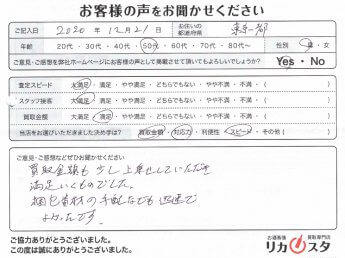 お客様の声をお聞かせください
ご記入日 2020年12月21日 お住いの都道府県 東京都
年齢 20代・30代・40代・50代・60代・70代・80代〜 性別 男・女
ご意見・ご感想を弊社ホームページにお客様の声として掲載させて頂いてもよろしいでしょうか? Yes・No
査定スピード 大満足・満足・やや満足・どちらでもない・やや不満・不満・( )
スタッフ接客 大満足・満足・やや満足・どちらでもない・やや不満・不満・( )
買取金額 大満足・満足・やや満足・どちらでもない・やや不満・不満・( )
当店をお選びいただきました決め手は? 買取金額・対応力・利便性・スピード・その他( )
ご意見・ご感想などぜひお聞かせください。
買取金額も少し上乗せしていただき
満足いくものでした。
梱包資材の手配なども迅速で
よかったです。
ご協力ありがとうございました。
この度は誠にありがとうございました。
お酒高価買取専門店
リカスタ